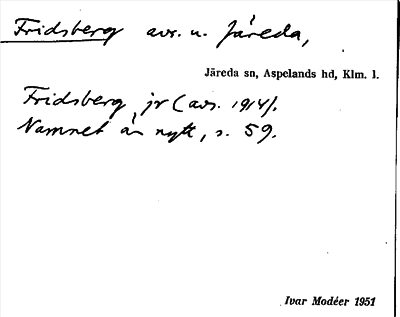 Fridsberg avs. u. Järeda,
Järeda sn, Aspelands hd, Klm. l.
Fridsberg, jr (avs. 1914).
Namnet är nytt, s. 59.
Ivar Modéer 1951